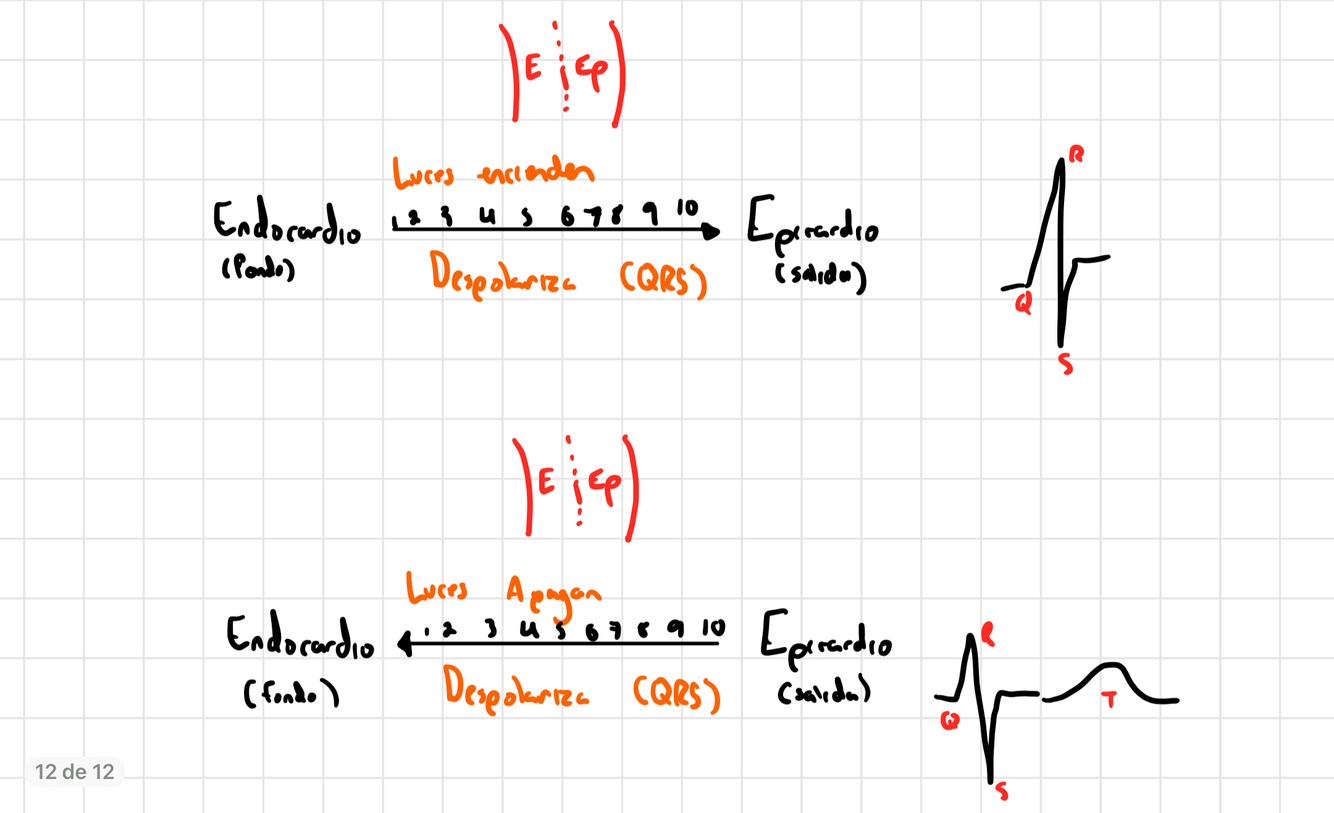 E Ep
Luces encienden
Endocardio 1 2 3 4 5 6 7 8 9 10 Epicardio
(fondo) Despolariza (QRS) (salida)
R
Q
S
E Ep
Luces Apagan
Endocardio 1 2 3 4 5 6 7 8 9 10 Epicardio
(fondo) Despolariza (QRS) (salida)
R
Q T
S
12 de 12